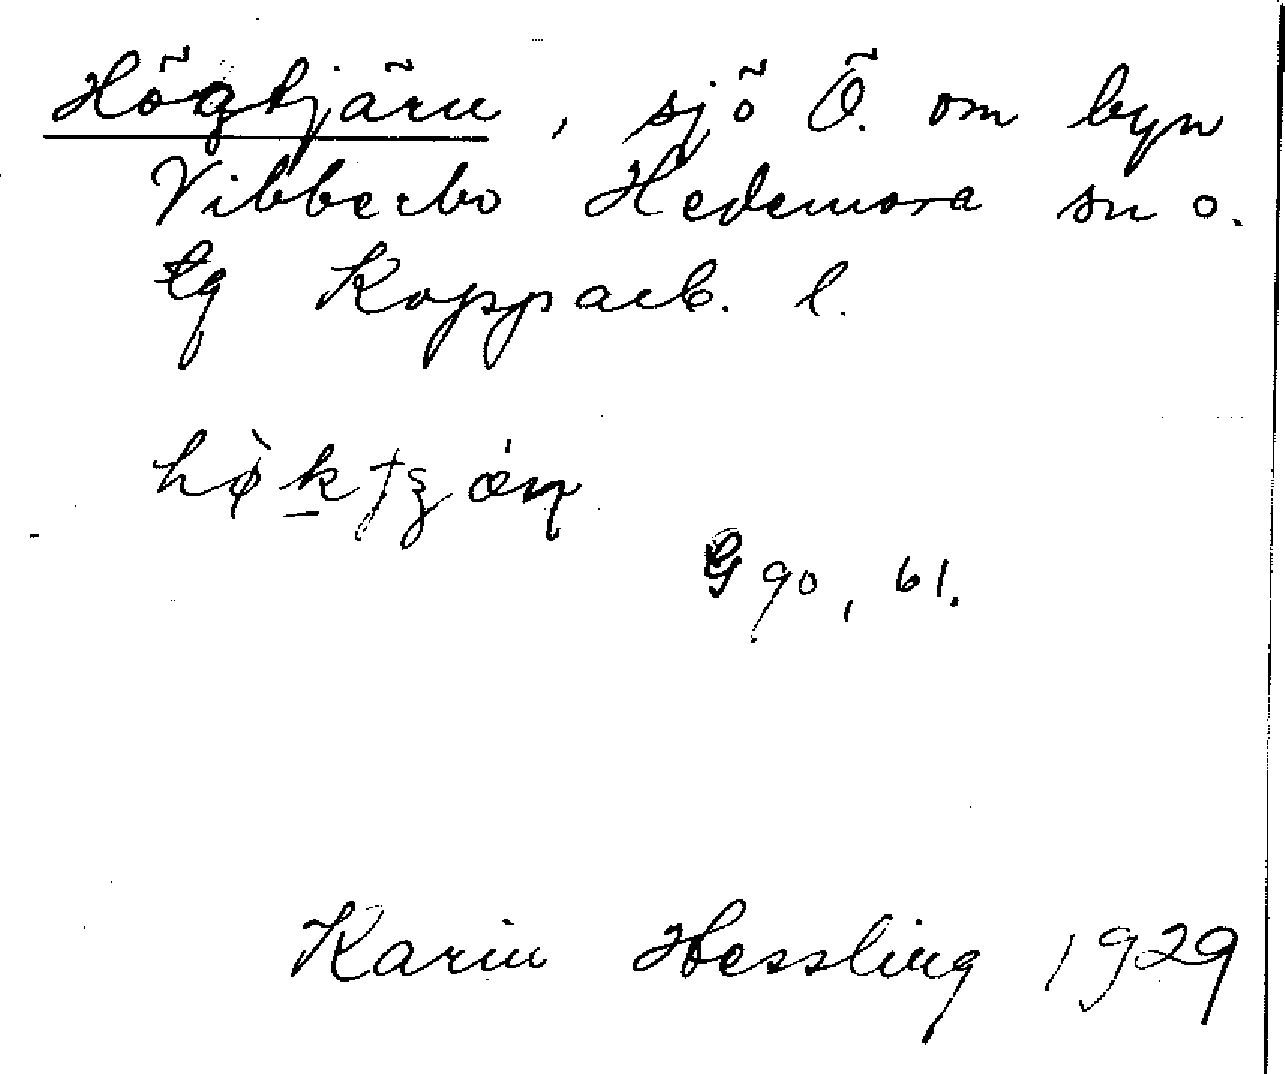 Högtjärn, sjö Ö. om byn
Vibberbo Hedemora sn o.
tg Kopparb. l.
G 90, 61.
Karin Hessling 1929